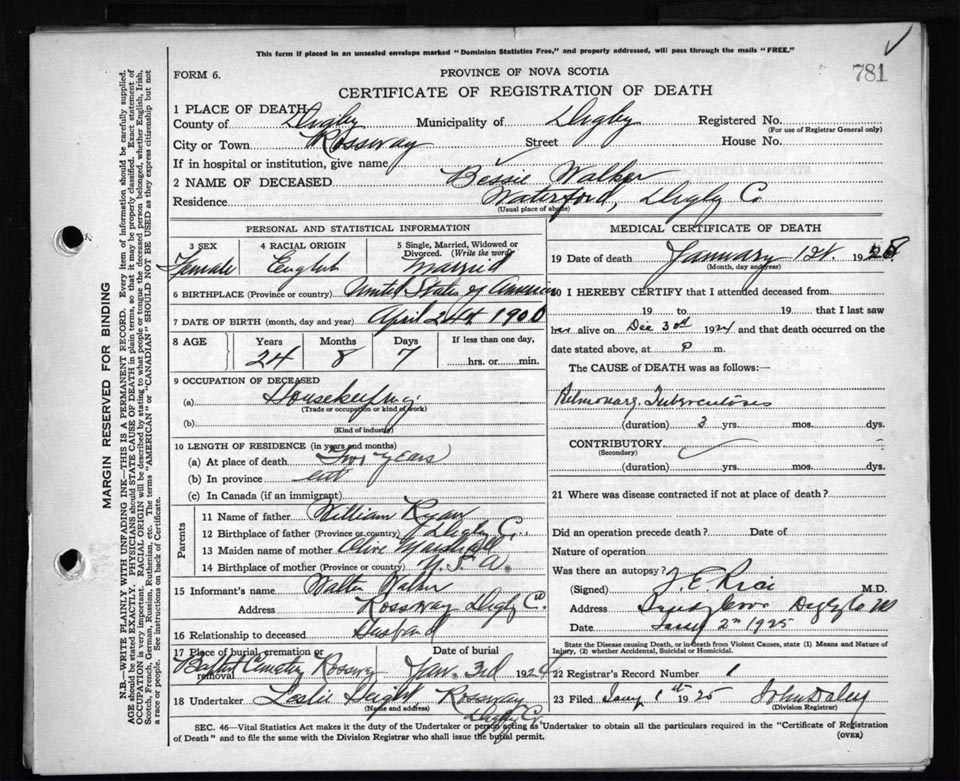 This form if placed in an unsealed envelope marked "Dominion Statistics Free," and properly addressed, will pass through the mails "FREE."
781
FORM 6.
PROVINCE OF NOVA SCOTIA
CERTIFICATE OF REGISTRATION OF DEATH
1 PLACE OF DEATH
County of Digby Municipality of Digby Registered No.
(For use of Registrar General only)
City or Town Rossway Street House No.
If in hospital or institution, give name
2 NAME OF DECEASED Bessie Walker
Residence Waterford, Digby Co
(Usual place of abode)
PERSONAL AND STATISTICAL INFORMATION
3 SEX 4 RACIAL ORIGIN 5 Single, Married, Widowed or Divorced. (Write the word)
Female English Married
6 BIRTHPLACE (Province or country) United States of America
7 DATE OF BIRTH (month, day and year) April 24th 1900
8 AGE Years Months Days If less than one day,
24 8 7 hrs. or min.
9 OCCUPATION OF DECEASED
(a) Housekeeping
(Trade or occupation or kind of work)
(b)
(Kind of industry)
10 LENGTH OF RESIDENCE (in years and months)
(a) At place of death Two years
(b) In province
(c) In Canada (if an immigrant)
Parents
11 Name of father William Ryan
12 Birthplace of father (Province or country) Digby Co.
13 Maiden name of mother Olive Marshall
14 Birthplace of mother (Province or country) U.S.A.
15 Informant's name Walter Walker
Address Rossway Digby Co.
16 Relationship to deceased Husband
17 Place of burial, cremation or removal Date of burial
Baptist Cemetery Rossway Jan. 3rd 1924
18 Undertaker Leslie Rossway
(Name and address)
Digby Co.
MEDICAL CERTIFICATE OF DEATH
19 Date of death January 1st. 192
(Month, day and year)
20 I HEREBY CERTIFY that I attended deceased from
19 to 19 that I last saw
her alive on Dec 30th 1924 and that death occurred on
date stated above, at P m.
The CAUSE of DEATH was as follows:—
Pulmonary Tuberculosis
(duration) 3 yrs. mos. dys.
CONTRIBUTORY
(Secondary)
(duration) yrs. mos. dys.
21 Where was disease contracted if not at place of death?
Did an operation precede death? Date of
Nature of operation
Was there an autopsy?
(Signed) J. E. Rice M.D.
Address Digby Co NS
Date Jany 2nd 1925
State the Disease causing Death, or in Death from Violent Causes, state (1) Means and Nature of Injury, (2) whether Accidental, Suicidal or Homicidal.
22 Registrar's Record Number 1
23 Filed Jany 1st 1925 John Daley
(Division Registrar)
SEC. 46—Vital Statistics Act makes it the duty of the Undertaker or person acting as Undertaker to obtain all the particulars required in the "Certificate of Registration
of Death" and to file the same with the Division Registrar who shall issue the burial permit.
(OVER)
MARGIN RESERVED FOR BINDING
N.B.—WRITE PLAINLY WITH UNFADING INK—THIS IS A PERMANENT RECORD. Every item of information should be carefully supplied.
AGE should be stated EXACTLY. PHYSICIANS should STATE CAUSE OF DEATH in plain terms, so that it may be properly classified. Exact statement of
OCCUPATION is very important. RACIAL ORIGIN will be described by stating to what people or tongue the deceased person belonged, whether English, Irish,
Scotch, French, German, Russian, Ruthenian, etc. The terms "AMERICAN" or "CANADIAN" SHOULD NOT BE USED as they express citizenship but not
a race or people. See instructions on back of Certificate.